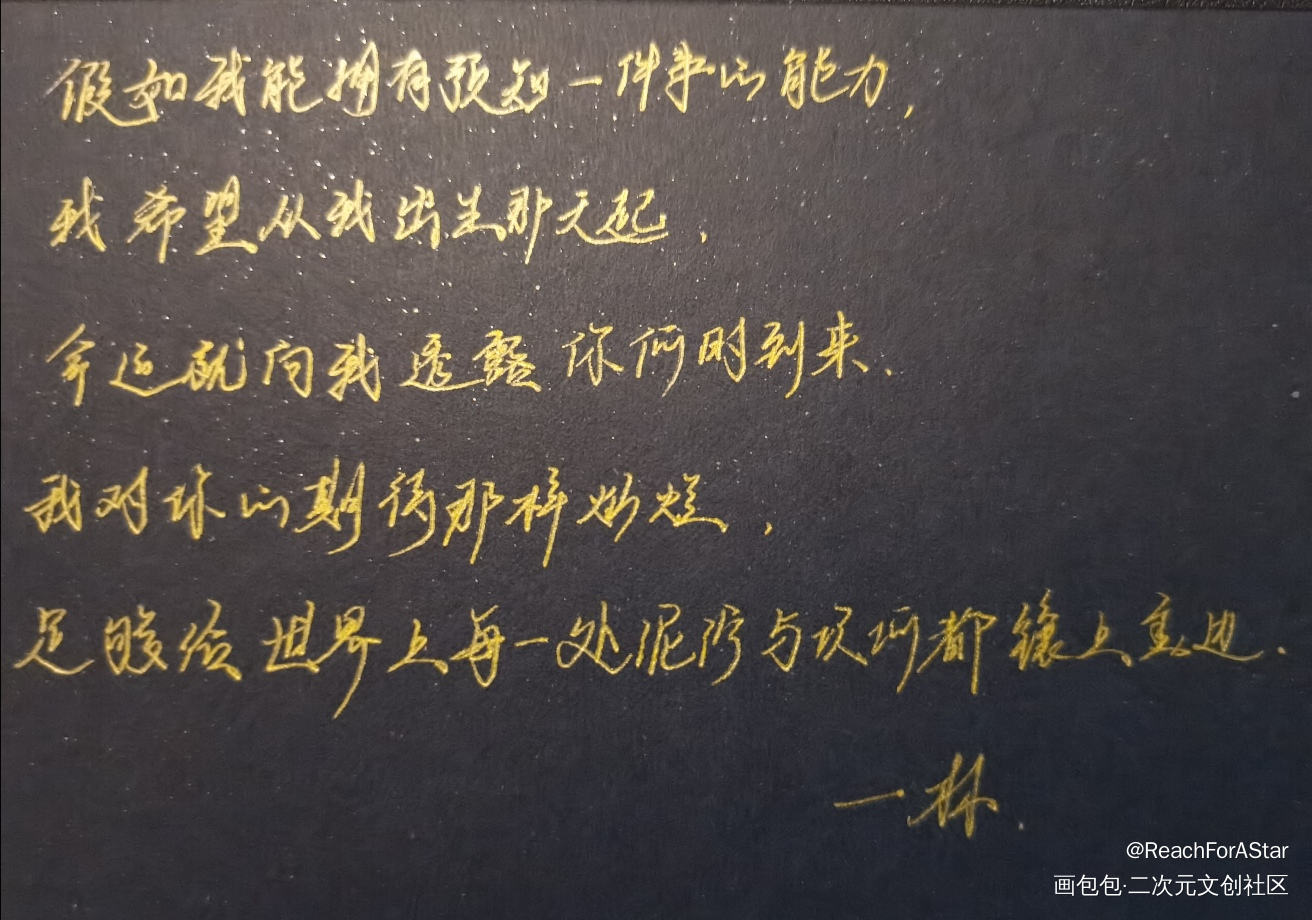 假如我能拥有预知一件事的能力,
我希望从我出生那天起,
命运就向我透露你何时到来.
我对你的期待那样灿烂,
足够给世界上每一处泥泞与坎坷都镶上金边.
一林.
@ReachForAStar
画包包·二次元文创社区